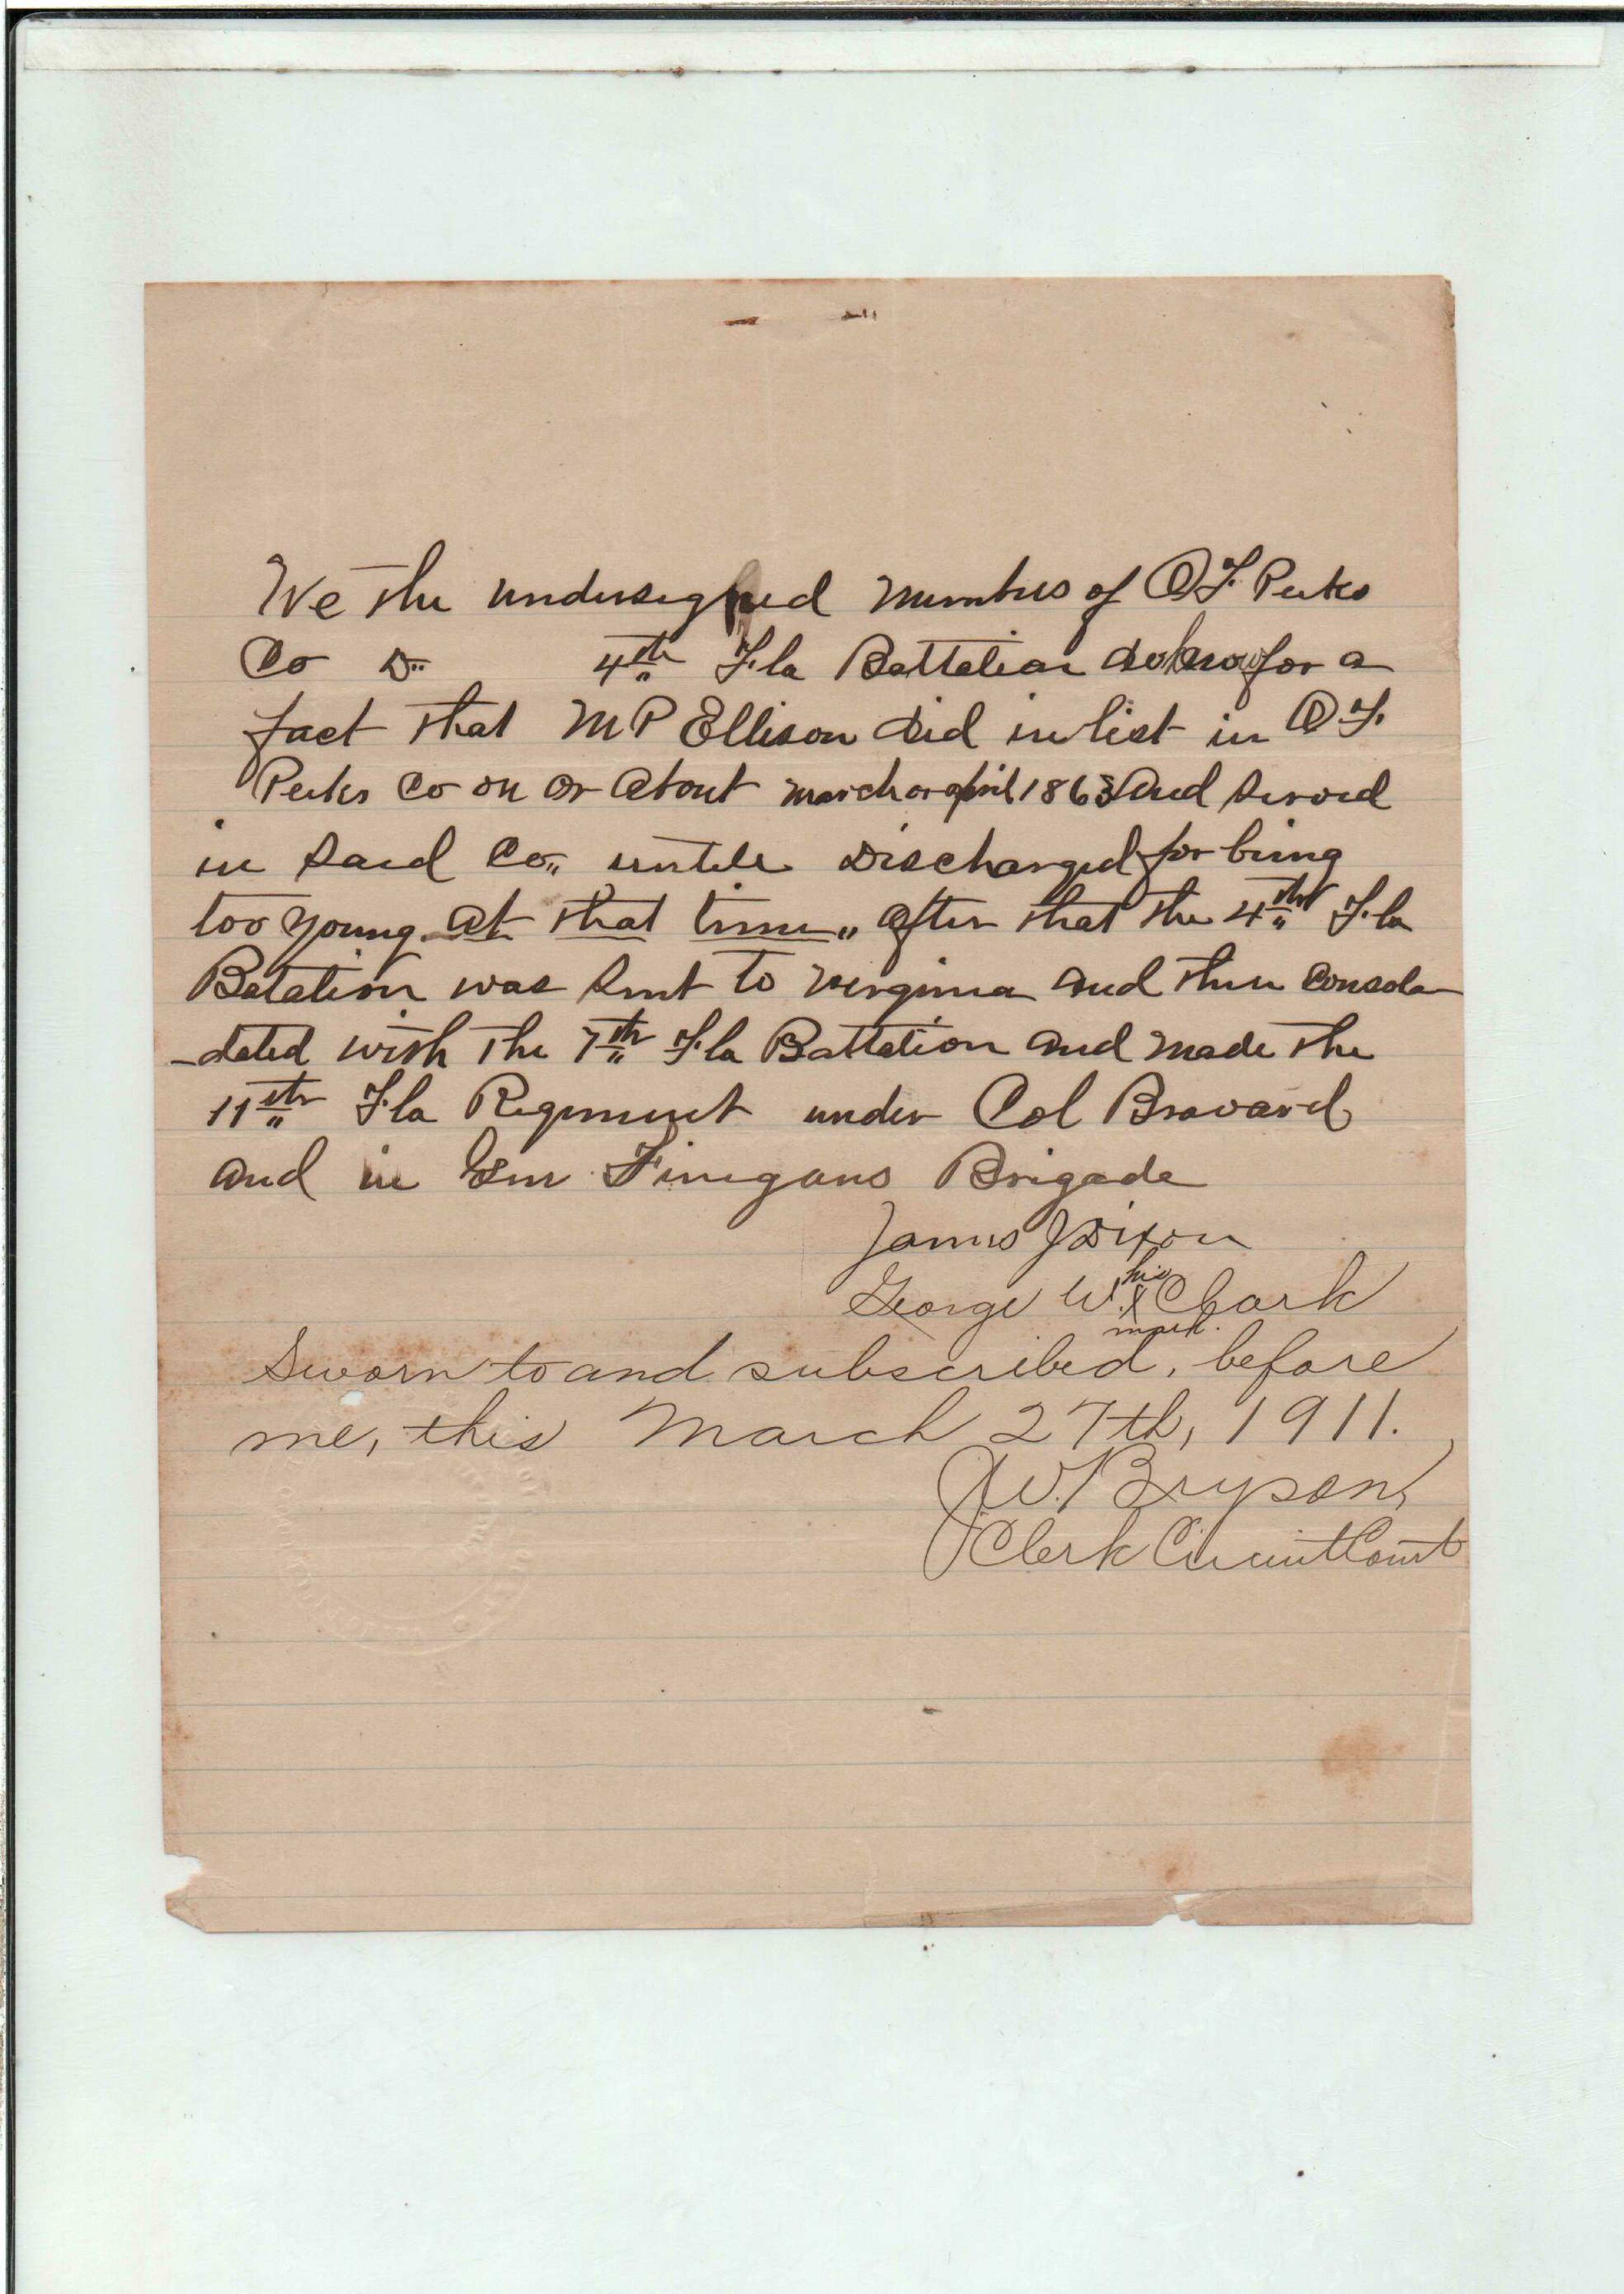 We the undersigned members of O F. Peeks
Co D.. 4th Fla Battalion do know for a
fact that M P Ellison did inlist in O F.
Peeks Co on or about march or april 1863 and served
in said Co,, untill Discharged for being
too young at that time,, after that the 4th Fla
Batalion was sent to verginia and then consola
-dated with the 7th Fla Battalion and made the
11th Fla Regiment under Col Bravard
and in Gen Finegans Brigade
James J Dixon
his
George W. X Clark
mark.
Sworn to and subscribed, before
me, this March 27th, 1911.
J W. Bryson,
Clerk Circuit Court